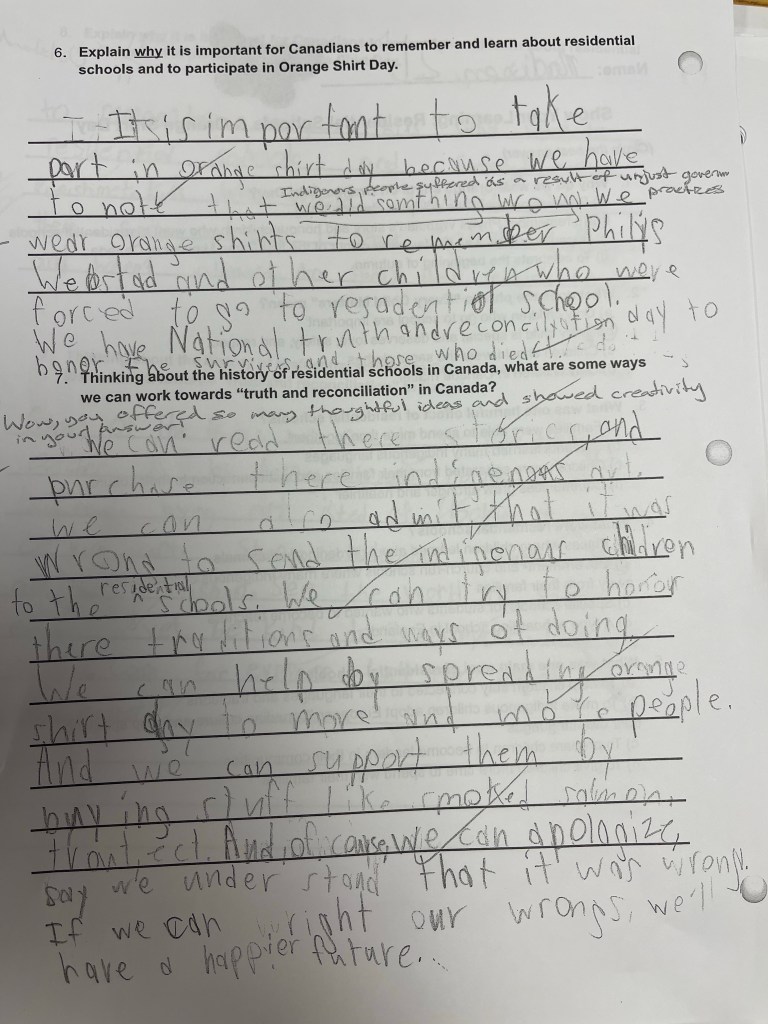 6. Explain why it is important for Canadians to remember and learn about residential
schools and to participate in Orange Shirt Day.
Itsis important to take
part in orange shirt day because we have
Indigenous people suffered as a result of unjust governm
practices
to note that we did somthing wrong. We
wear orange shirts to remember Philys
Webstad and other children who were
forced to go to resadential school.
We have National truth and reconcilyation day to
honor the survivers, and those who died
7. Thinking about the history of residential schools in Canada, what are some ways
we can work towards "truth and reconciliation" in Canada?
Wow, you offered so many thoughtful ideas and showed creativity
in your answer!
We can read there stories, and
purchase there indigenous art.
we can also admit, that it was
wrong to send the indigenous children
to the residential schools. We can try to honor
there traditions and ways of doing.
We can help by spreading orange
shirt day to more and more people.
And we can support them by
buying stuff like smoked salmon,
trout, ect. And, of cause, we can apologize,
say we understand that it was wrong.
If we can right our wrongs, we'll
have a happier future...